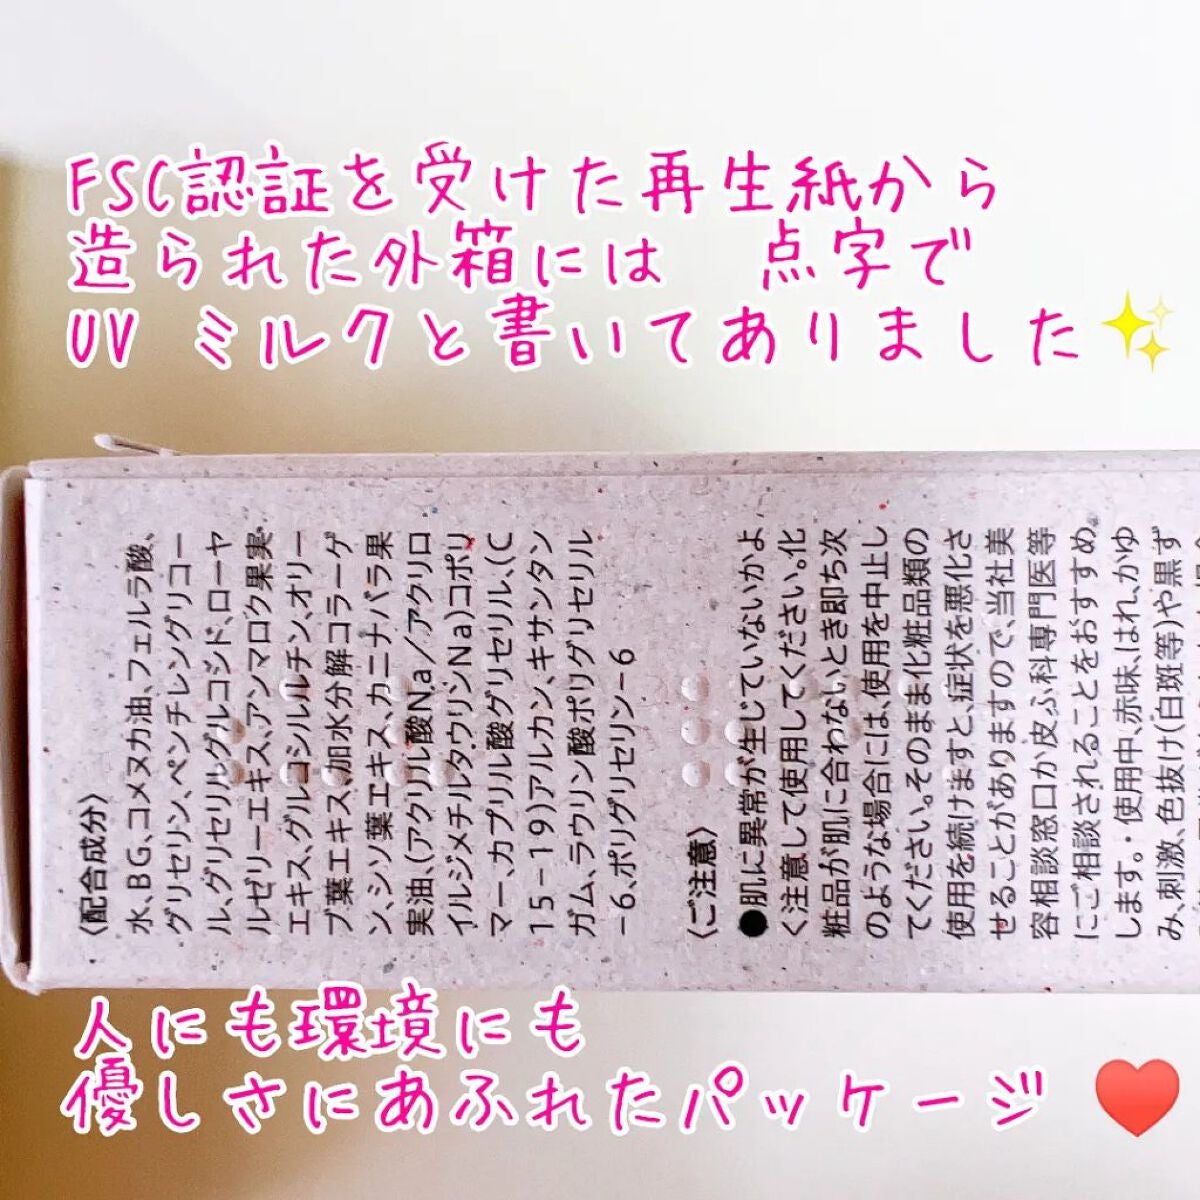 FSC認証を受けた再生紙から
造られた外箱には 点字で
UV ミルクと書いてありました✨
〈配合成分〉
水、BG、コメヌカ油、フェルラ酸、
グリセリン、ペンチレングリコー
ル、グリセリルグルコシド、ローヤ
ルゼリーエキス、アンマロク果実
エキス、グルコシルルチン、オリー
ブ葉エキス、加水分解コラーゲ
ン、シソ葉エキス、カニナバラ果
実油、(アクリル酸Na/アクリロ
イルジメチルタウリンNa)コポリ
マー、カプリル酸グリセリル、(C
15-19)アルカン、キサンタン
ガム、ラウリン酸ポリグリセリル
-6、ポリグリセリン-6
〈ご注意〉
●肌に異常が生じていないかよ
く注意して使用してください。化
粧品が肌に合わないとき即ち次
のような場合には、使用を中止し
てください。そのまま化粧品類の
使用を続けますと、症状を悪化さ
せることがありますので、当社美
容相談窓口か皮ふ科専門医等
にご相談されることをおすすめ
します。・使用中、赤味、はれ、かゆ
み、刺激、色抜け(白斑等)や黒ず
人にも環境にも
優しさにあふれたパッケージ ♥